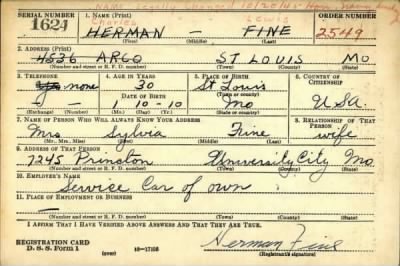 NAME Legally Changed 10/20/45
SERIAL NUMBER
1. NAME (Print)
ORDER NUMBER
Charles Lewis
1624
HERMAN — FINE
2549
(First) (Middle) (Last)
2. ADDRESS (Print)
4536 ARGO ST LOUIS MO
(Number and street or R. F. D. number) (Town) (County) (State)
3. TELEPHONE
4. AGE IN YEARS
5. PLACE OF BIRTH
6. COUNTRY OF CITIZENSHIP
none
30
St Louis
DATE OF BIRTH
(Town or county)
1 10-10
Mo
U.S.A.
(Exchange) (Number)
(Mo.) (Day) (Yr.)
(State or country)
7. NAME OF PERSON WHO WILL ALWAYS KNOW YOUR ADDRESS
8. RELATIONSHIP OF THAT PERSON
Mrs Sylvia Fine wife
(Mr., Mrs., Miss) (First) (Middle) (Last)
9. ADDRESS OF THAT PERSON
7245 Princton University City Mo.
(Number and street or R. F. D. number) (Town) (County) (State)
10. EMPLOYER'S NAME
Service Car of own
11. PLACE OF EMPLOYMENT OR BUSINESS
(Number and street or R. F. D. number) (Town) (County) (State)
I AFFIRM THAT I HAVE VERIFIED ABOVE ANSWERS AND THAT THEY ARE TRUE.
REGISTRATION CARD
D. S. S. Form 1
16-17105
Herman Fine
(Registrant's signature)